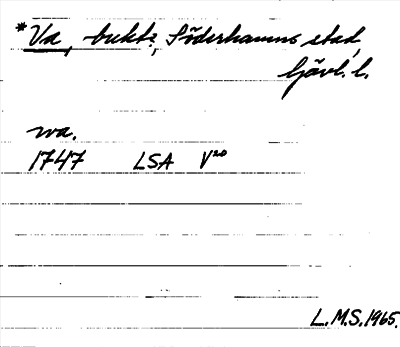 *Va, bukt?, Söderhamns stad,
Gävl. l.
wa.
1747 LSA V20
L.M.S. 1965.